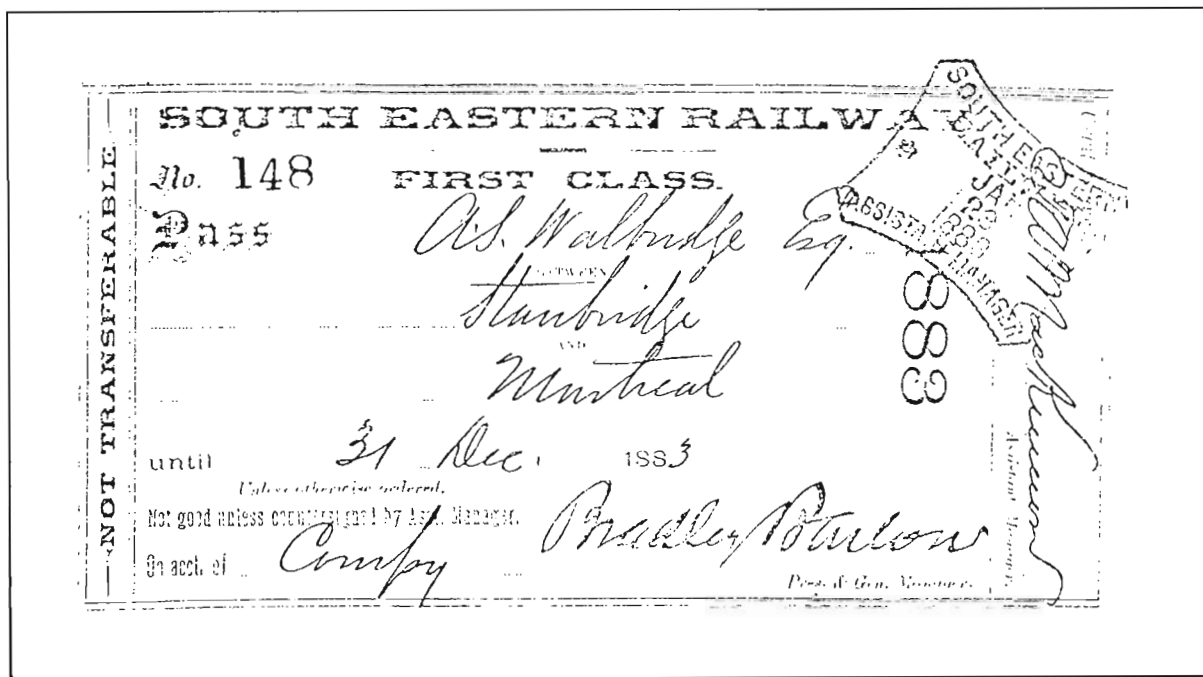 NOT TRANSFERABLE
SOUTH EASTERN RAILWAY
No. 148 FIRST CLASS.
Pass A.S. Walbridge Esq.
BETWEEN
Stanbridge
AND
Montreal
until 31 Dec. 1883
Unless otherwise ordered.
Not good unless countersigned by Asst. Manager.
On acct. of Compy Bradley Barlow
Pres. & Gen. Manager.
1883
SOUTH EASTERN
RAILWAY
JAN
23
1883
ASSISTANT MANAGER
Assistant Manager.